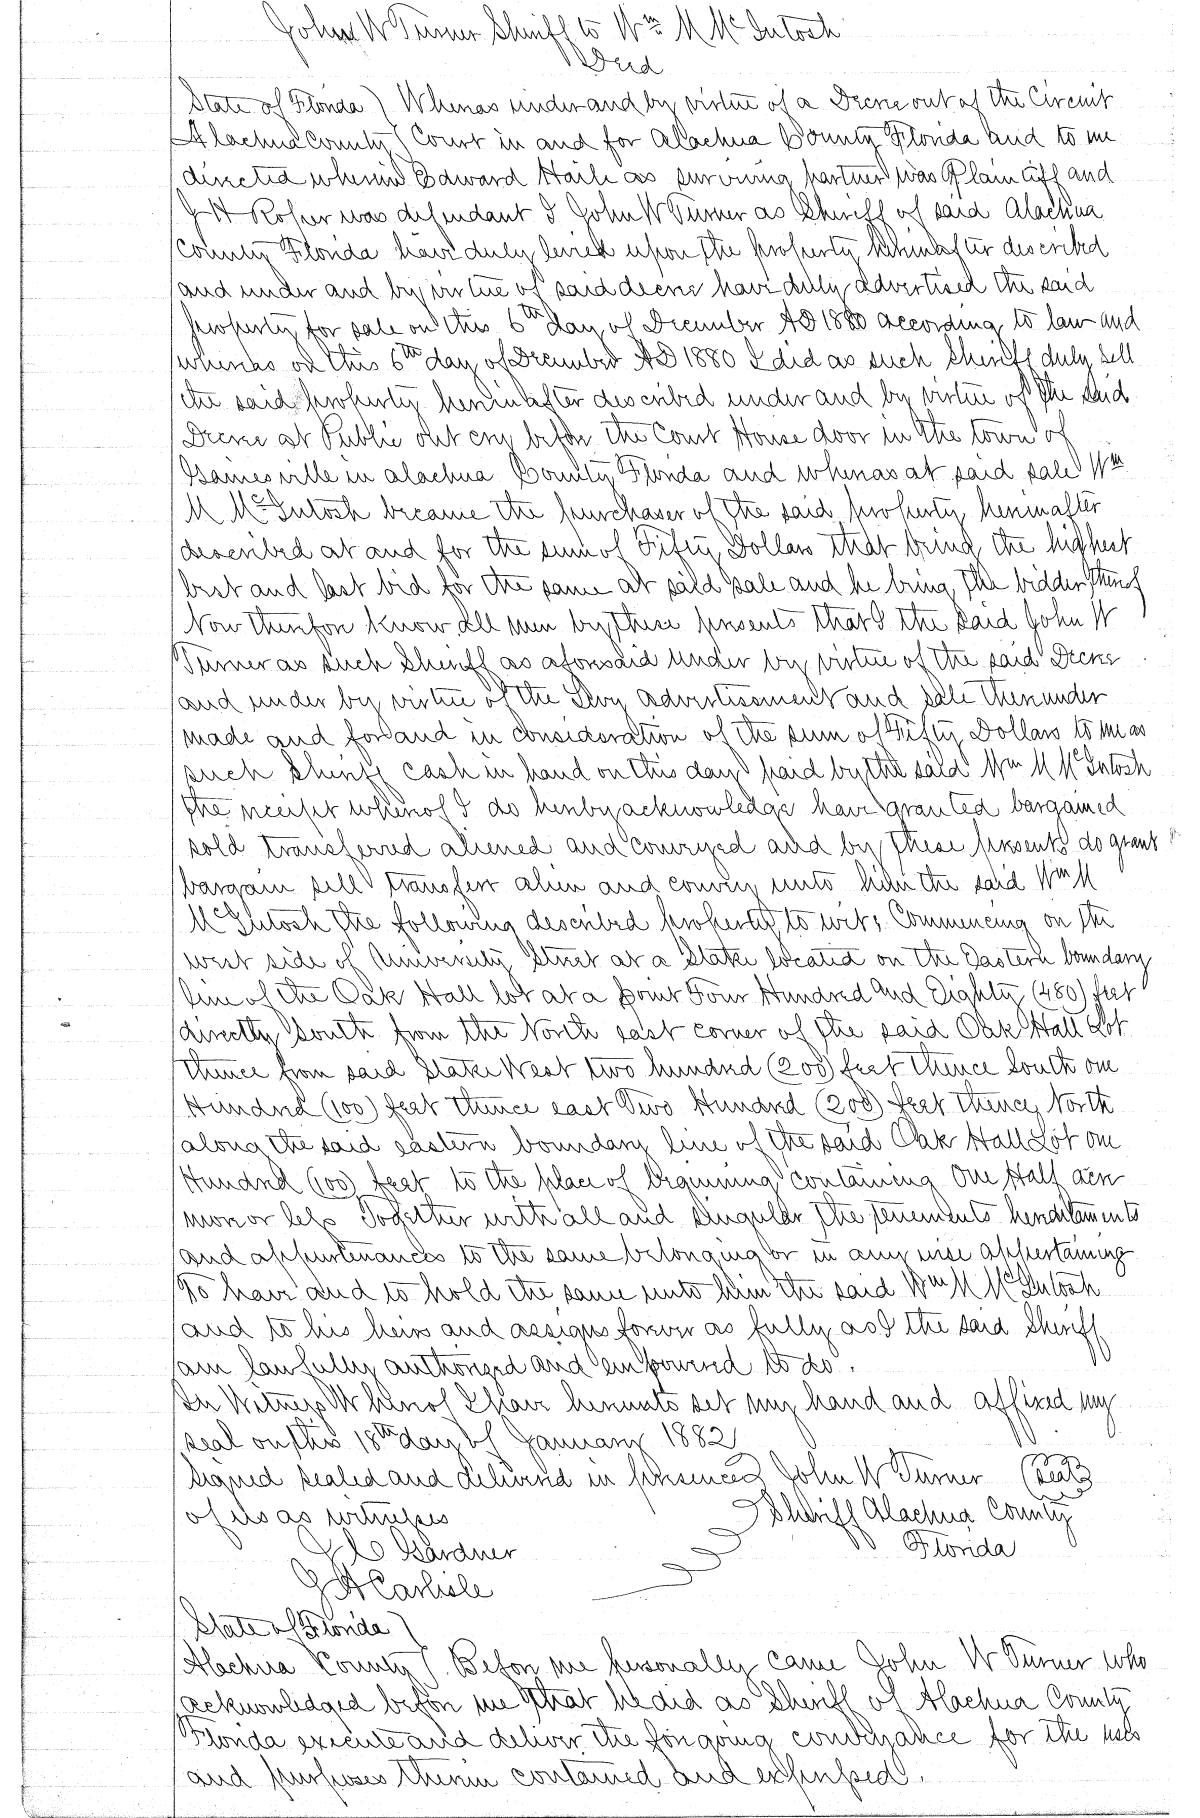 John W Turner Sheriff to Wm M McIntosh
Deed
State of Florida ) Whereas under and by virtue of a Decree out of the Circuit
Alachua County ( Court in and for Alachua County Florida and to me
directed wherein Edward Haile as surviving partner was Plaintiff and
J H Roper was defendant I John W Turner as Sheriff of said Alachua
County Florida have duly levied upon the property hereinafter described
and under and by virtue of said decree have duly advertised the said
property for sale on this 6th day of December AD 1880 according to law and
whereas on this 6th day of December AD 1880 I did as such Sheriff duly sell
the said property hereinafter described under and by virtue of the said
Decree at Public out cry before the Court House door in the town of
Gainesville in Alachua County Florida and whereas at said sale Wm
M McIntosh became the purchaser of the said property hereinafter
described at and for the sum of Fifty Dollars that being the highest
best and last bid for the same at said sale and he being the bidder thereof
Now therefore know all men by these presents that I the said John W
Turner as such Sheriff as aforesaid under by virtue of the said Decree
and under by virtue of the Levy advertisement and sale thereunder
made and for and in consideration of the sum of Fifty Dollars to me as
such Sheriff cash in hand on this day paid by the said Wm M McIntosh
the receipt whereof I do hereby acknowledge have granted bargained
sold transferred aliened and conveyed and by these presents do grant
bargain sell transfer alien and convey unto him the said Wm M
McIntosh the following described property to wit; Commencing on the
west side of University Street at a Stake located on the Eastern boundary
line of the Oak Hall lot at a point Four Hundred and Eighty (480) feet
directly South from the North east corner of the said Oak Hall Lot
thence from said Stake West two hundred (200) feet thence South one
Hundred (100) feet thence east Two Hundred (200) feet thence North
along the said eastern boundary line of the said Oak Hall Lot one
Hundred (100) feet to the place of beginning containing One Half acre
more or less Together with all and singular the tenements hereditaments
and appurtenances to the same belonging or in any wise appertaining
To have and to hold the same unto him the said Wm M McIntosh
and to his heirs and assigns forever as fully as I the said Sheriff
am lawfully authorized and empowered to do.
In Witness Whereof I have hereunto set my hand and affixed my
seal on this 18th day of January 1882
Signed sealed and delivered in presence John W Turner (Seal)
of us as witnesses Sheriff Alachua County
J C Gardner Florida
J A Carlisle
State of Florida )
Alachua County ( Before me personally came John W Turner who
acknowledged before me that he did as Sheriff of Alachua County
Florida execute and deliver the foregoing conveyance for the uses
and purposes therein contained and expressed.